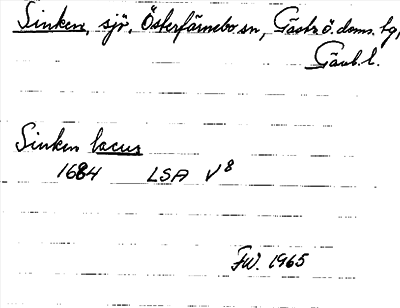 Sinken, sjö, Österfärnebo sn, Gästr. ö. doms. tg,
Gävb. l.
Sinken locus
1684 LSA V 8
FW. 1965